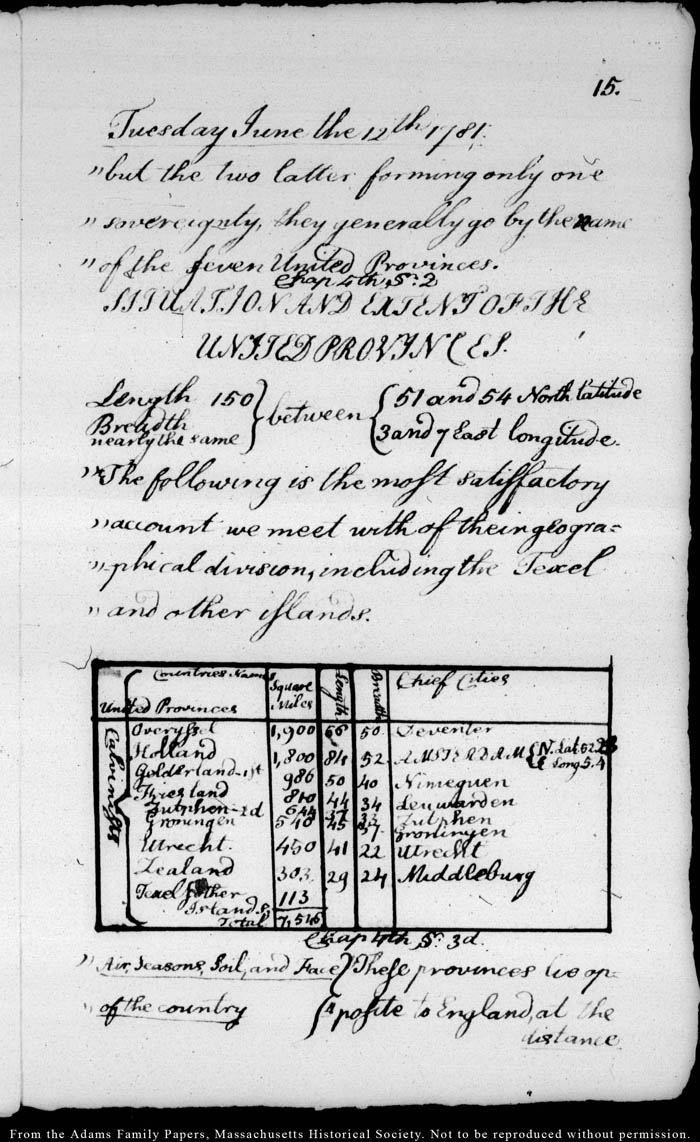 15.
Tuesday June the 12th 1781.
"but the two latter forming only one
"sovereignty, they generally go by the name
"of the seven United Provinces.
Chap 4th, S: 2
SITUATION AND EXTENT OF THE
UNITED PROVINCES.
Length 150 } between { 51 and 54 North latitude
Breadth
nearly the same } { 3 and 7 East longitude.
"The following is the most satisfactory
"account we meet with of their geogra=
"phical division, including the Texel
"and other islands.
Countries Names Square Miles Length Breadth Chief Cities
United Provinces
Calvinists
Overyssel 1,900 66 50 Deventer
Holland 1,800 84 52 AMSTERDAM { N. Lat. 52.23
E Long 5.4
Gelderland-1st 986 50 40 Nimeguen
Friesland 810 44 34 Leuwarden
Zutphen-2d 644 37 33 Zutphen
Groningen 540 45 37 Groningen
Utrecht. 450 41 22 Utrecht
Zealand 303. 29 24 Middleburg
Texel & other 113
Islands
Total 7,546
Chap 4th, S: 3d.
"Air, Seasons, Soil, and Face } These provinces lie op-
"of the country } posite to England, at the
distance
From the Adams Family Papers, Massachusetts Historical Society. Not to be reproduced without permission.